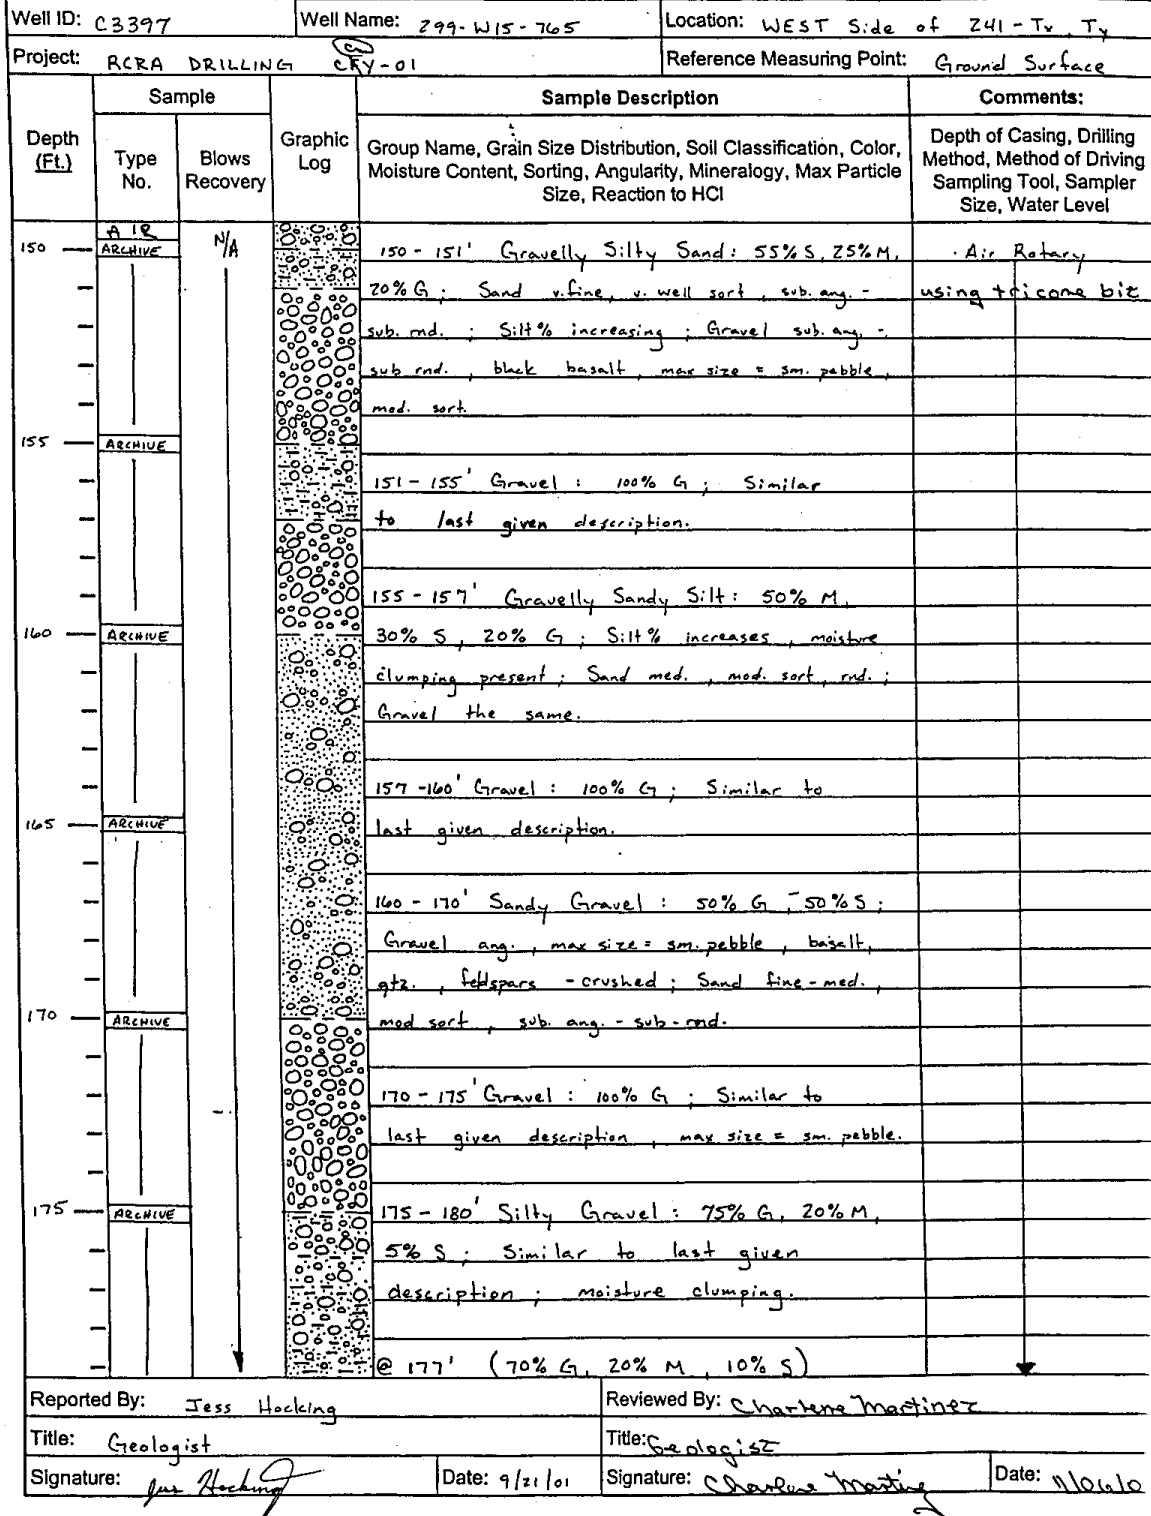 Well ID: C3397 Well Name: 299-W15-765 Location: WEST Side of 241-Tx, Ty
Project: RCRA DRILLING CRY-01 Reference Measuring Point: Ground Surface
Sample Sample Description Comments:
Depth (Ft.) Type No. Blows Recovery Graphic Log
Group Name, Grain Size Distribution, Soil Classification, Color,
Moisture Content, Sorting, Angularity, Mineralogy, Max Particle
Size, Reaction to HCl
Depth of Casing, Drilling
Method, Method of Driving
Sampling Tool, Sampler
Size, Water Level
AIR N/A
150 ARCHIVE 150-151' Gravelly Silty Sand: 55% S, 25% M, · Air Rotary
20% G; Sand v.fine, v. well sort, sub. ang. - using tricone bit
sub. rnd.; Silt% increasing; Gravel sub. ang. -
sub rnd., black basalt, max size = sm. pebble,
mod. sort.
155 ARCHIVE
151-155' Gravel: 100% G; Similar
to last given description.
155-157' Gravelly Sandy Silt: 50% M,
160 ARCHIVE 30% S, 20% G; Silt% increases, moisture
clumping present; Sand med., mod. sort, rnd.;
Gravel the same.
157-160' Gravel: 100% G; Similar to
165 ARCHIVE last given description.
160-170' Sandy Gravel: 50% G, 50% S;
Gravel ang., max size = sm. pebble, basalt,
qtz., feldspars - crushed; Sand fine-med.,
170 ARCHIVE mod sort, sub. ang. - sub-rnd.
170-175' Gravel: 100% G; Similar to
last given description, max size = sm. pebble.
175 ARCHIVE 175-180' Silty Gravel: 75% G, 20% M,
5% S; Similar to last given
description; moisture clumping.
@ 177' (70% G, 20% M, 10% S)
Reported By: Jess Hocking Reviewed By: Charlene Martinez
Title: Geologist Title: Geologist
Signature: Jess Hocking Date: 9/21/01 Signature: Charlene Martinez Date: 11/06/0